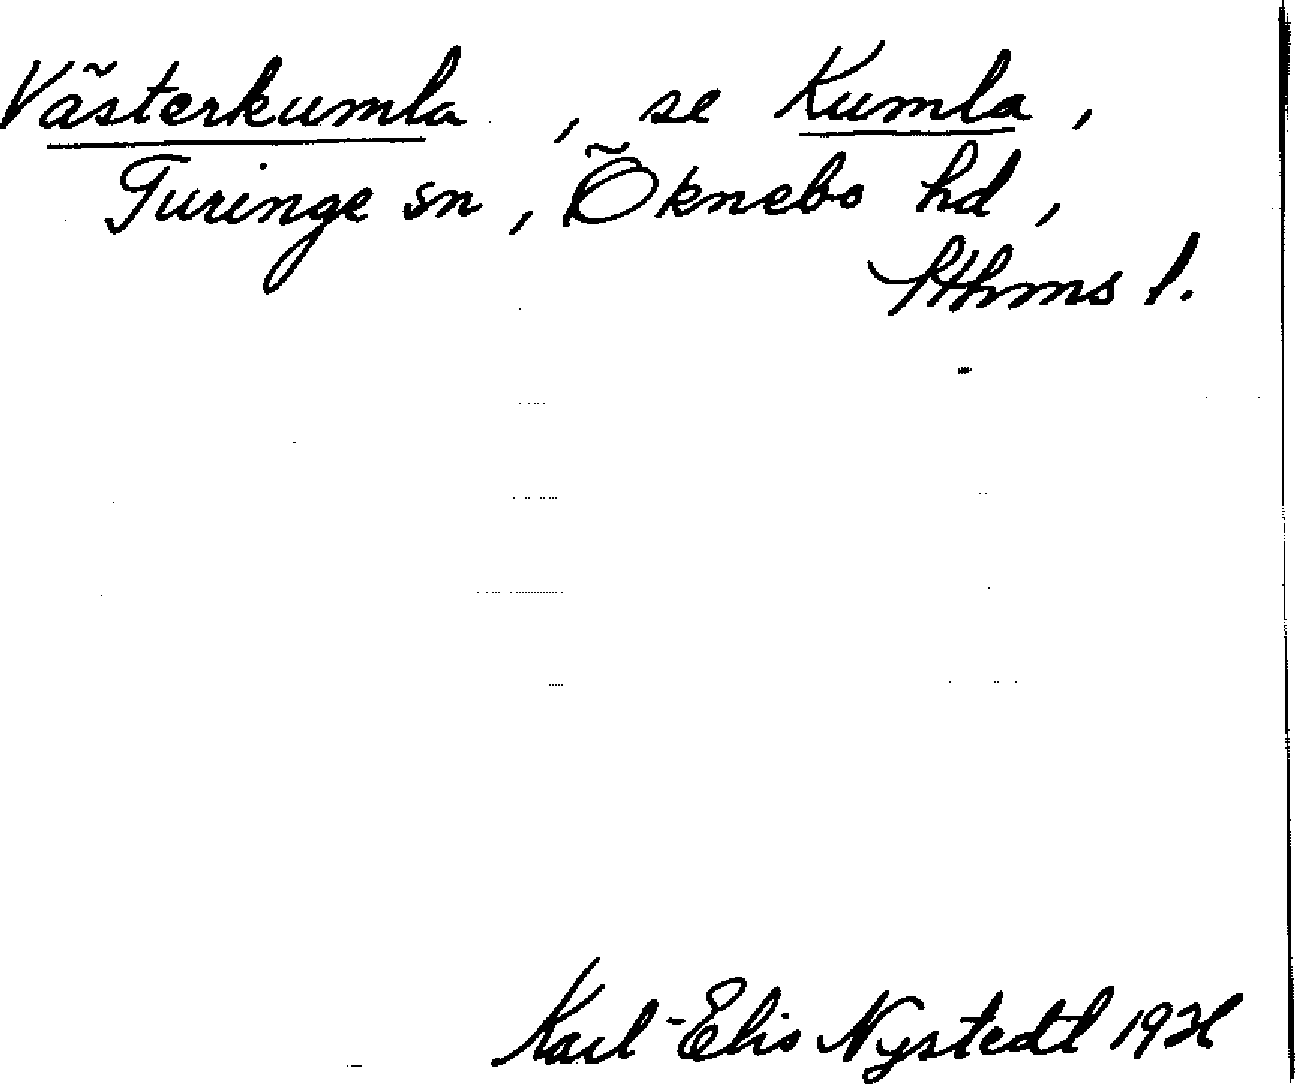 Västerkumla, se Kumla,
Turinge sn, Öknebo hd,
Sthms l.
Karl-Elis Nystedt